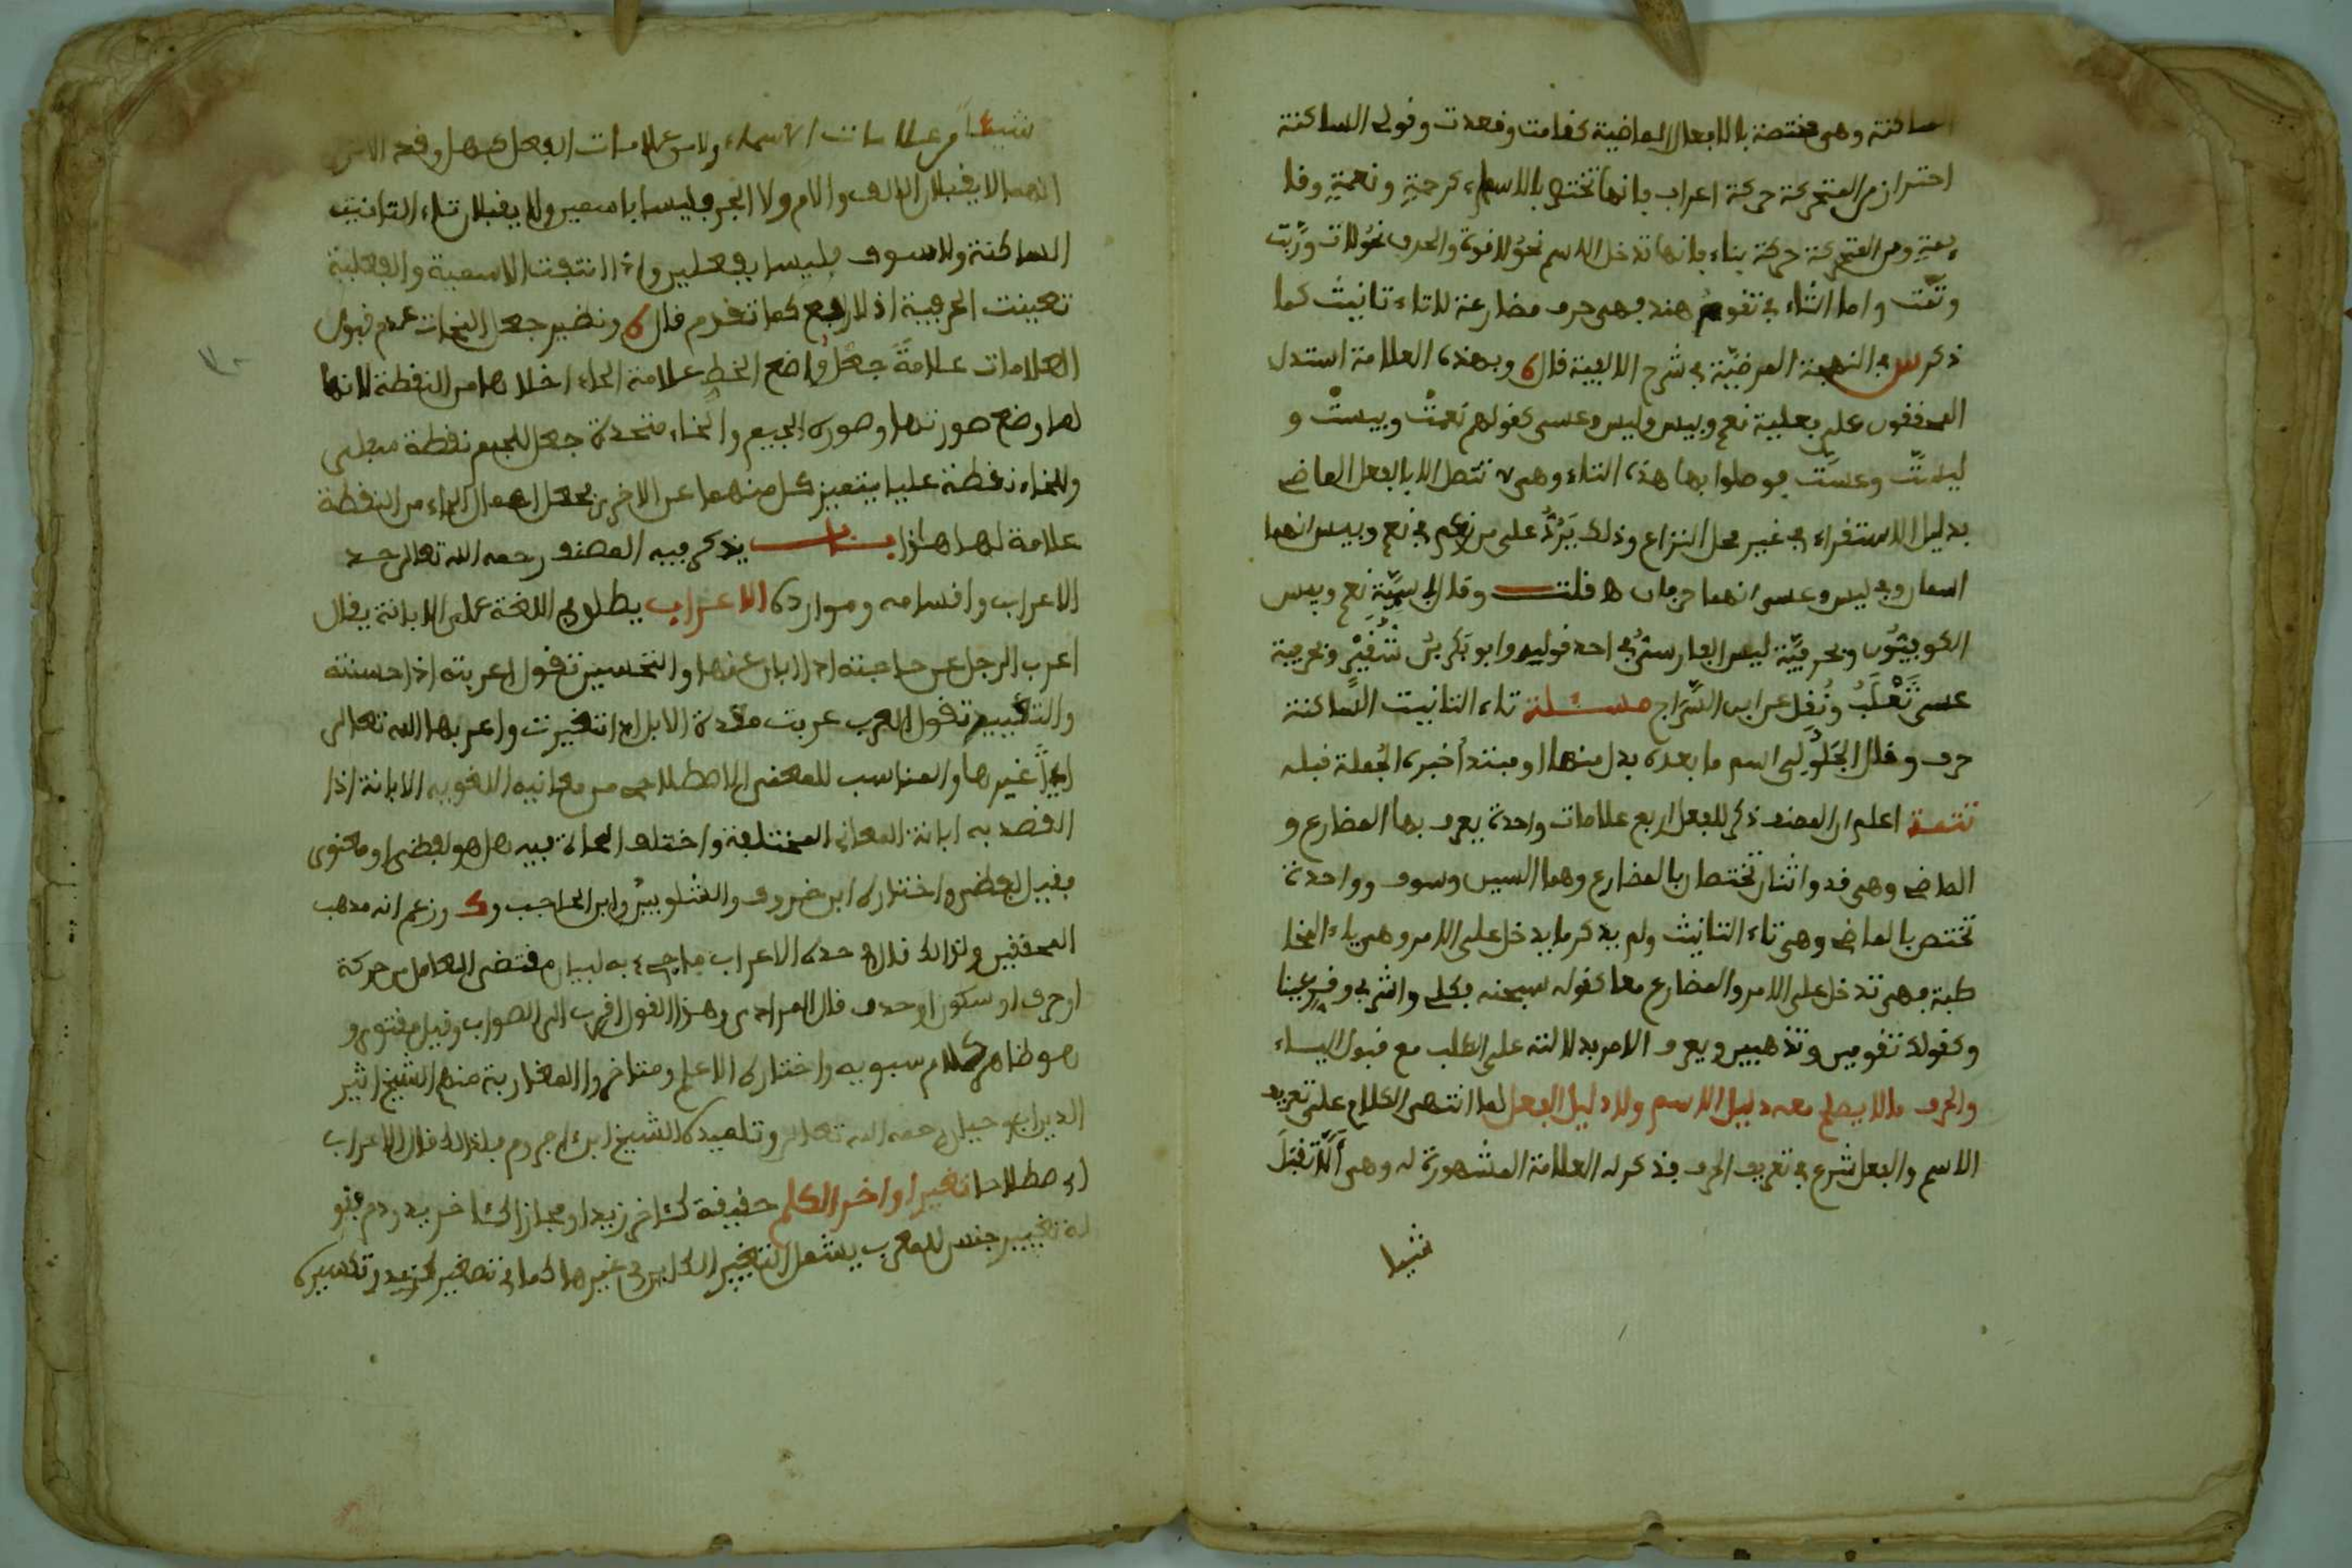 الساكنة وهي مختصة بالابعال الماضية كفامت وفعدت وفولى الساكنة
احتراز من المتحركة حركة اعراب بانها تختص بالاسماء كرحمةٍ ونعمةٍ وفا
يمةٍ ومن المتحركة حركة بناء بانها تدخل الاسم نحو لا فوة والحرف نحو لات ورُبّت
وثمّت واما التاء في تفومُ هند بهي حرف مضارعة لا تاء تانيث كما
ذكر س في النهجة المرضيّة في شرح الالبية فال وبهذه العلامة استدل
المحففون على بعلية نعم وبيس وليس وعسى كفولهم نعمتْ وبيستْ و
ليستْ وعستْ بوصلوا بها هذه التاء وهي لا تتصل الا بالبعل الماضي
بدليل الاستفراء في غير محل النزاع وذلك يَرُدُّ على من زعم في نعم وبيس انهما
اسمان وفي ليس وعسى انهما حرفان فلت وفال باسميّة نعم وبيس
الكوبيّون وبحربيّة ليس البارسيُّ في احد فوليه وابو بكر بنُ شُفَيْرٍ وبحربية
عسى ثَعْلَبُ ونُفِل عن ابن السَّراج مسئلة تاء التانيث السَّاكنة
حرف وفال الجَلُولِي اسم ما بعده بدل منها او مبتدأ خبره الجُملة فبله
تتمة اعلم ان المصنف ذكر للبعل اربع علامات واحدة يعرف بها المضارع و
الماضي وهي فد واثنان تختصان بالمضارع وهما السين وسوف وواحدة
تختص بالماضي وهي تاء التانيث ولم يذكر ما يدخل على الامر وهي ياء المخا
طبة بهي تدخل على الامر والمضارع معا كفوله سبحنه بكلي واشربي وفري عينا
وكفولك تفومين وتذهبين ويعرف الامر بدلالته على الطلب مع فبول الياء
والحرف ما لا يصلح معه دليل الاسم ولا دليل البعل لما انتهى الكلام على تعريف
الاسم والبعل شرع في تعريف الحرف بذكر له العلامة المشهورة له وهي ألّا تفبل
شيئا
شيئا من علامات الاسماء ولا من علامات البعل كهل وفد
انهما لا يفبلان الالف والام ولا الجر بليسا باسمين ولا يفبلان تاء التانيث
الساكنة ولا سوف بليسا ببعلين واذا انتبت الاسمية والبعلية
تعينت الحربية اذ لا رابع كما تفدم فال ونضير جعل النحات عدم فبول
العلامات علامةً جعْلُ واضع الخط علامة الحاء اخلاءها من النفطة لانها
لما وضع صورتها وصورة الجيم والخاء متحدة جعل للجيم نفطة سبلى
وللخاء نفطة عليا يتميز كل منهما عن الاخر بجعل اهمال الحاء من النفطة
علامة لها هذا باب يذكر بيه المصنف رحمه الله تعالى حد
الاعراب وافسامه وموارده الاعراب يطلق في اللغة على الابانة يفال
اعرب الرجل عن حاجته اذا ابان عنها والتحسين تفول اعربته اذا حسنته
والتغيير تفول العرب عربت معدة الابل اذا تغيرت واعربها الله تعالى
اي غيرها والمناسب للمعنى الاصطلاحي من معانيه اللغويه الابانة اذا
الفصد به ابانة المعاني المختلفة واختلف النحاة بيه هل هو لبضي او معنوي
بفيل لبضي واختاره ابن خروف والشلوبين وابن الحاجب وك وزعم انه مذهب
المحففين ولذلك فال في حده الاعراب ما جيء به لبيان مفتضى العامل من حركة
او حرف او سكون او حذف فال المرادي وهذا الفول افرب الى الصواب وفيل معنوي و
هو ظاهر كلام سبويه واختاره الاعلم ومتاخروا المغاربة منهم الشيخ اثير
الدين ابو حيان رحمه الله تعالى وتلميذه الشيخ ابن اجروم بلذلك فال الاعراب
اي اصطلاحا تغيير اواخر الكلم حفيفة كئاخر زيد او مجازا كئاخر يد ودم بفو
له تغيير جنس للمعرب يشمل التغيير الكاين في غيرها كما في تصغير كزيد وتكسيره